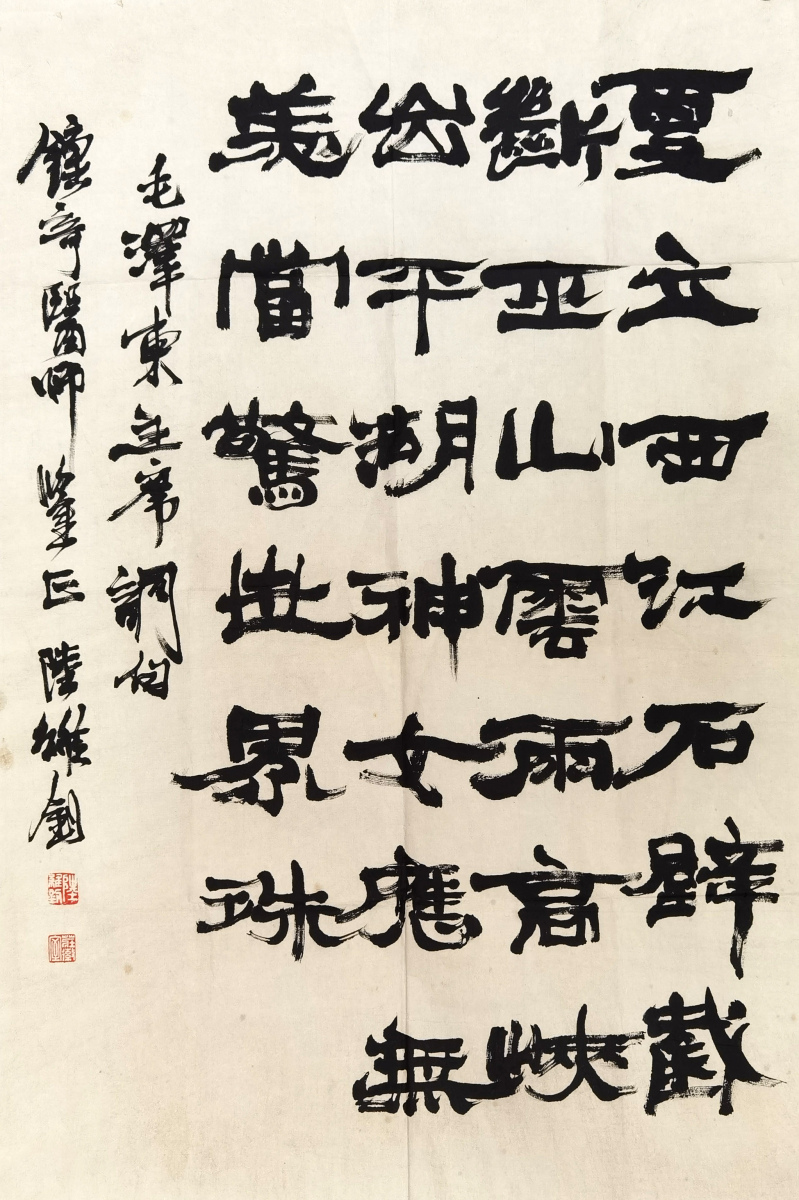 更立西江石壁截
斷巫山雲雨高峽
出平湖神女應無
恙當驚世界殊
毛澤東主席詞句
鐘奇醫師鑒正 陸雄釗